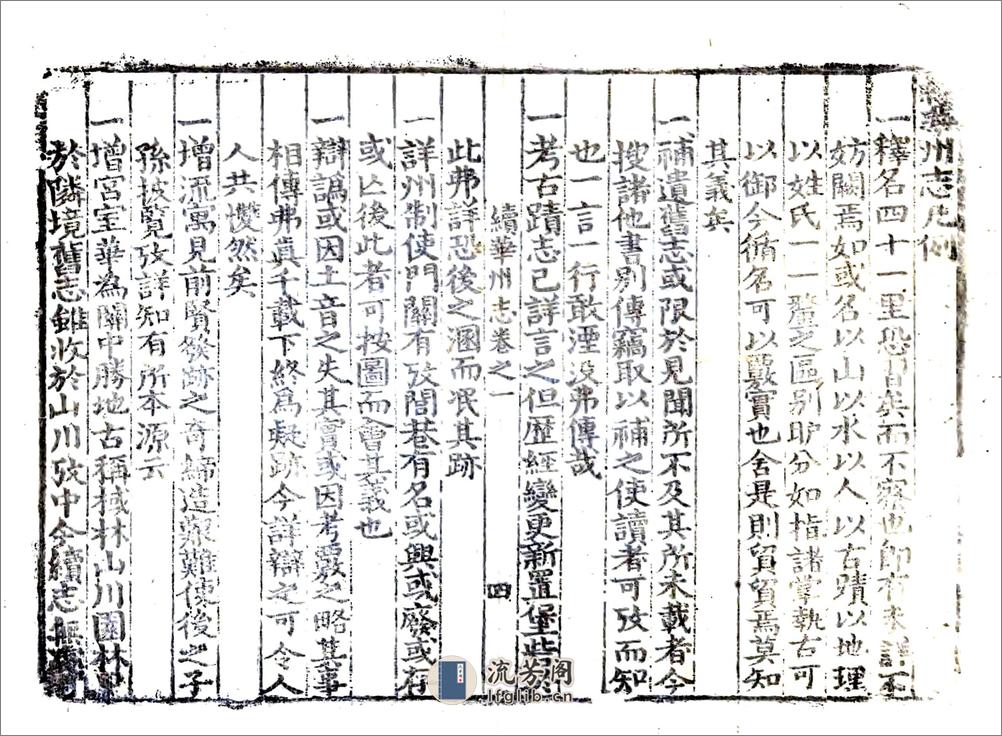 華州志凡例
一釋名四十一里恐習矣而不察也即有未詳不
妨闕焉如或名以山以水以人以古蹟以地理
以姓氏一一釐之區別眆分如指諸掌執古可
以御今循名可以覈實也舍是則貿貿焉莫知
其義矣
一補遺舊志或限於見聞所不及其所未載者今
搜諸他書別傳竊取以補之使讀者可攷而知
也一言一行敢湮沒弗傳哉
一考古蹟志已詳言之但歷經變更新置堡些
續華州志卷之一
四
此弗詳恐後之溷而泯其跡
一詳州制使門關有攷閭巷有名或興或廢或存
或亾後此者可按圖而會其義也
一辯譌或因土音之失其實或因考覈之略其事
相傳弗眞千載下終爲疑跡今詳辯之可令人
人共懓然矣
一增流寓見前賢發跡之奇締造艱難使後之子
孫披覧攷詳知有所本源云
一增宮室華為關中勝地古稱棫林山川園林
於隣境舊志雖收於山川攷中今續志無
流芳阁
lfglib.cn